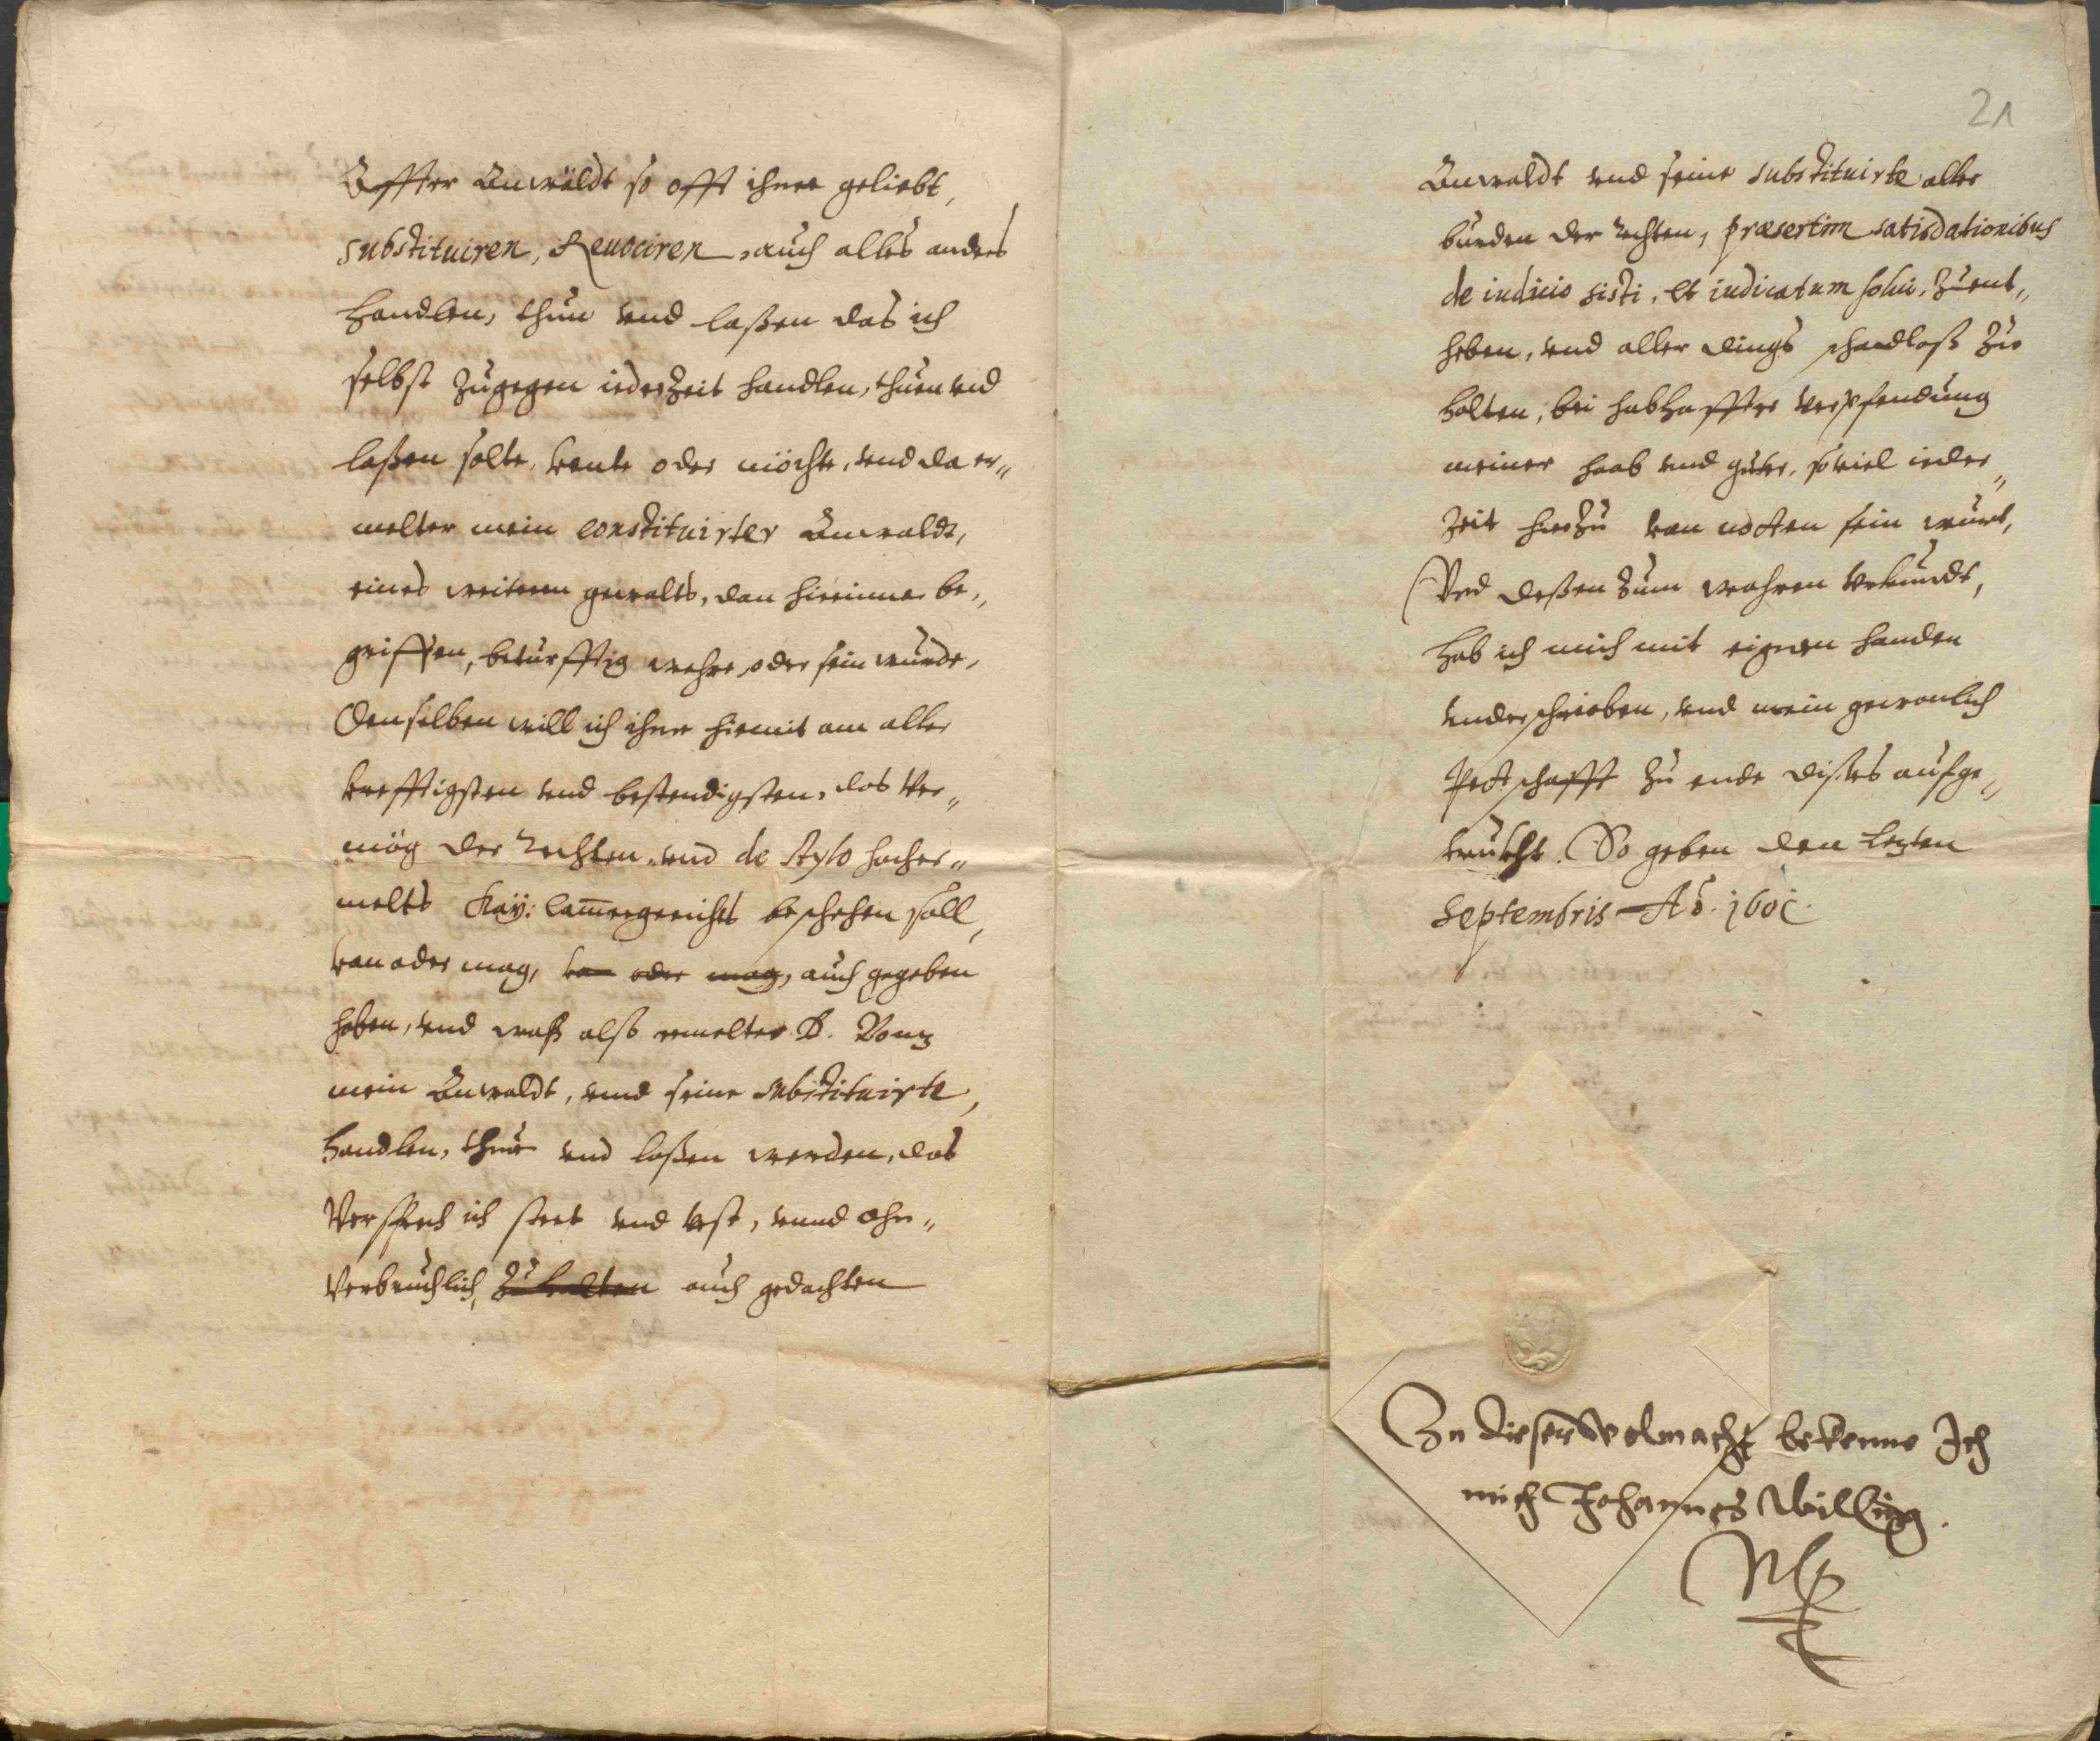 Affter Anwäldt so offt ihnen geliebt,
substituiren, Reuociren, auch alles anders
handlen, thun vnd laßen das ich
selbst zugegen iederzeit handlen, thuen vnd
laßen solte, konte oder möchte, vnd da er„
melter mein constituirter Anwaldt,
eines weiteren gewalts, dan hierinnen be„
griffen, betürfftig wehre, oder sein wurde,
Denselben will ich ihme hiemit am aller
krefftigsten vnd bestendigsten, das ver„
mög der Rechten, vnd de stylo hocher„
melts Kay: Cammergerichts beschehen soll,
kan oder mag, kan oder mag, auch gegeben
haben, vnd waß alß ermelter D.
mein Anwaldt, vnnd seine substituirte,
handlen, thun vnd laßen werden, das
Versprech ich steet vnd vest, vnnd ohn„
verbruchlich, zuhalten auch gedachten
21
Anwaldt vnd seine substituirte aller
burden der Rechten, præsertim satisdationibus
de iudicio sisti, et iudicatum solui, zuent„
heben, vnd aller dings schadloß zu
halten, bei habhaffter verpfendung
meiner haab vnd guter, souiel ieder„
zeit hierzu von nöten sein würt,
Vnd deßen zum wahren vrkundt,
hab ich mich mit eigenen handen
underschrieben, vnd mein gewonlich
Pettschafft zu ende dißes aufge„
truckht. So geben den letzten
Septembris Aō.
Zu dieser Volmacht bekenne Ich
mich Johannes Willing.